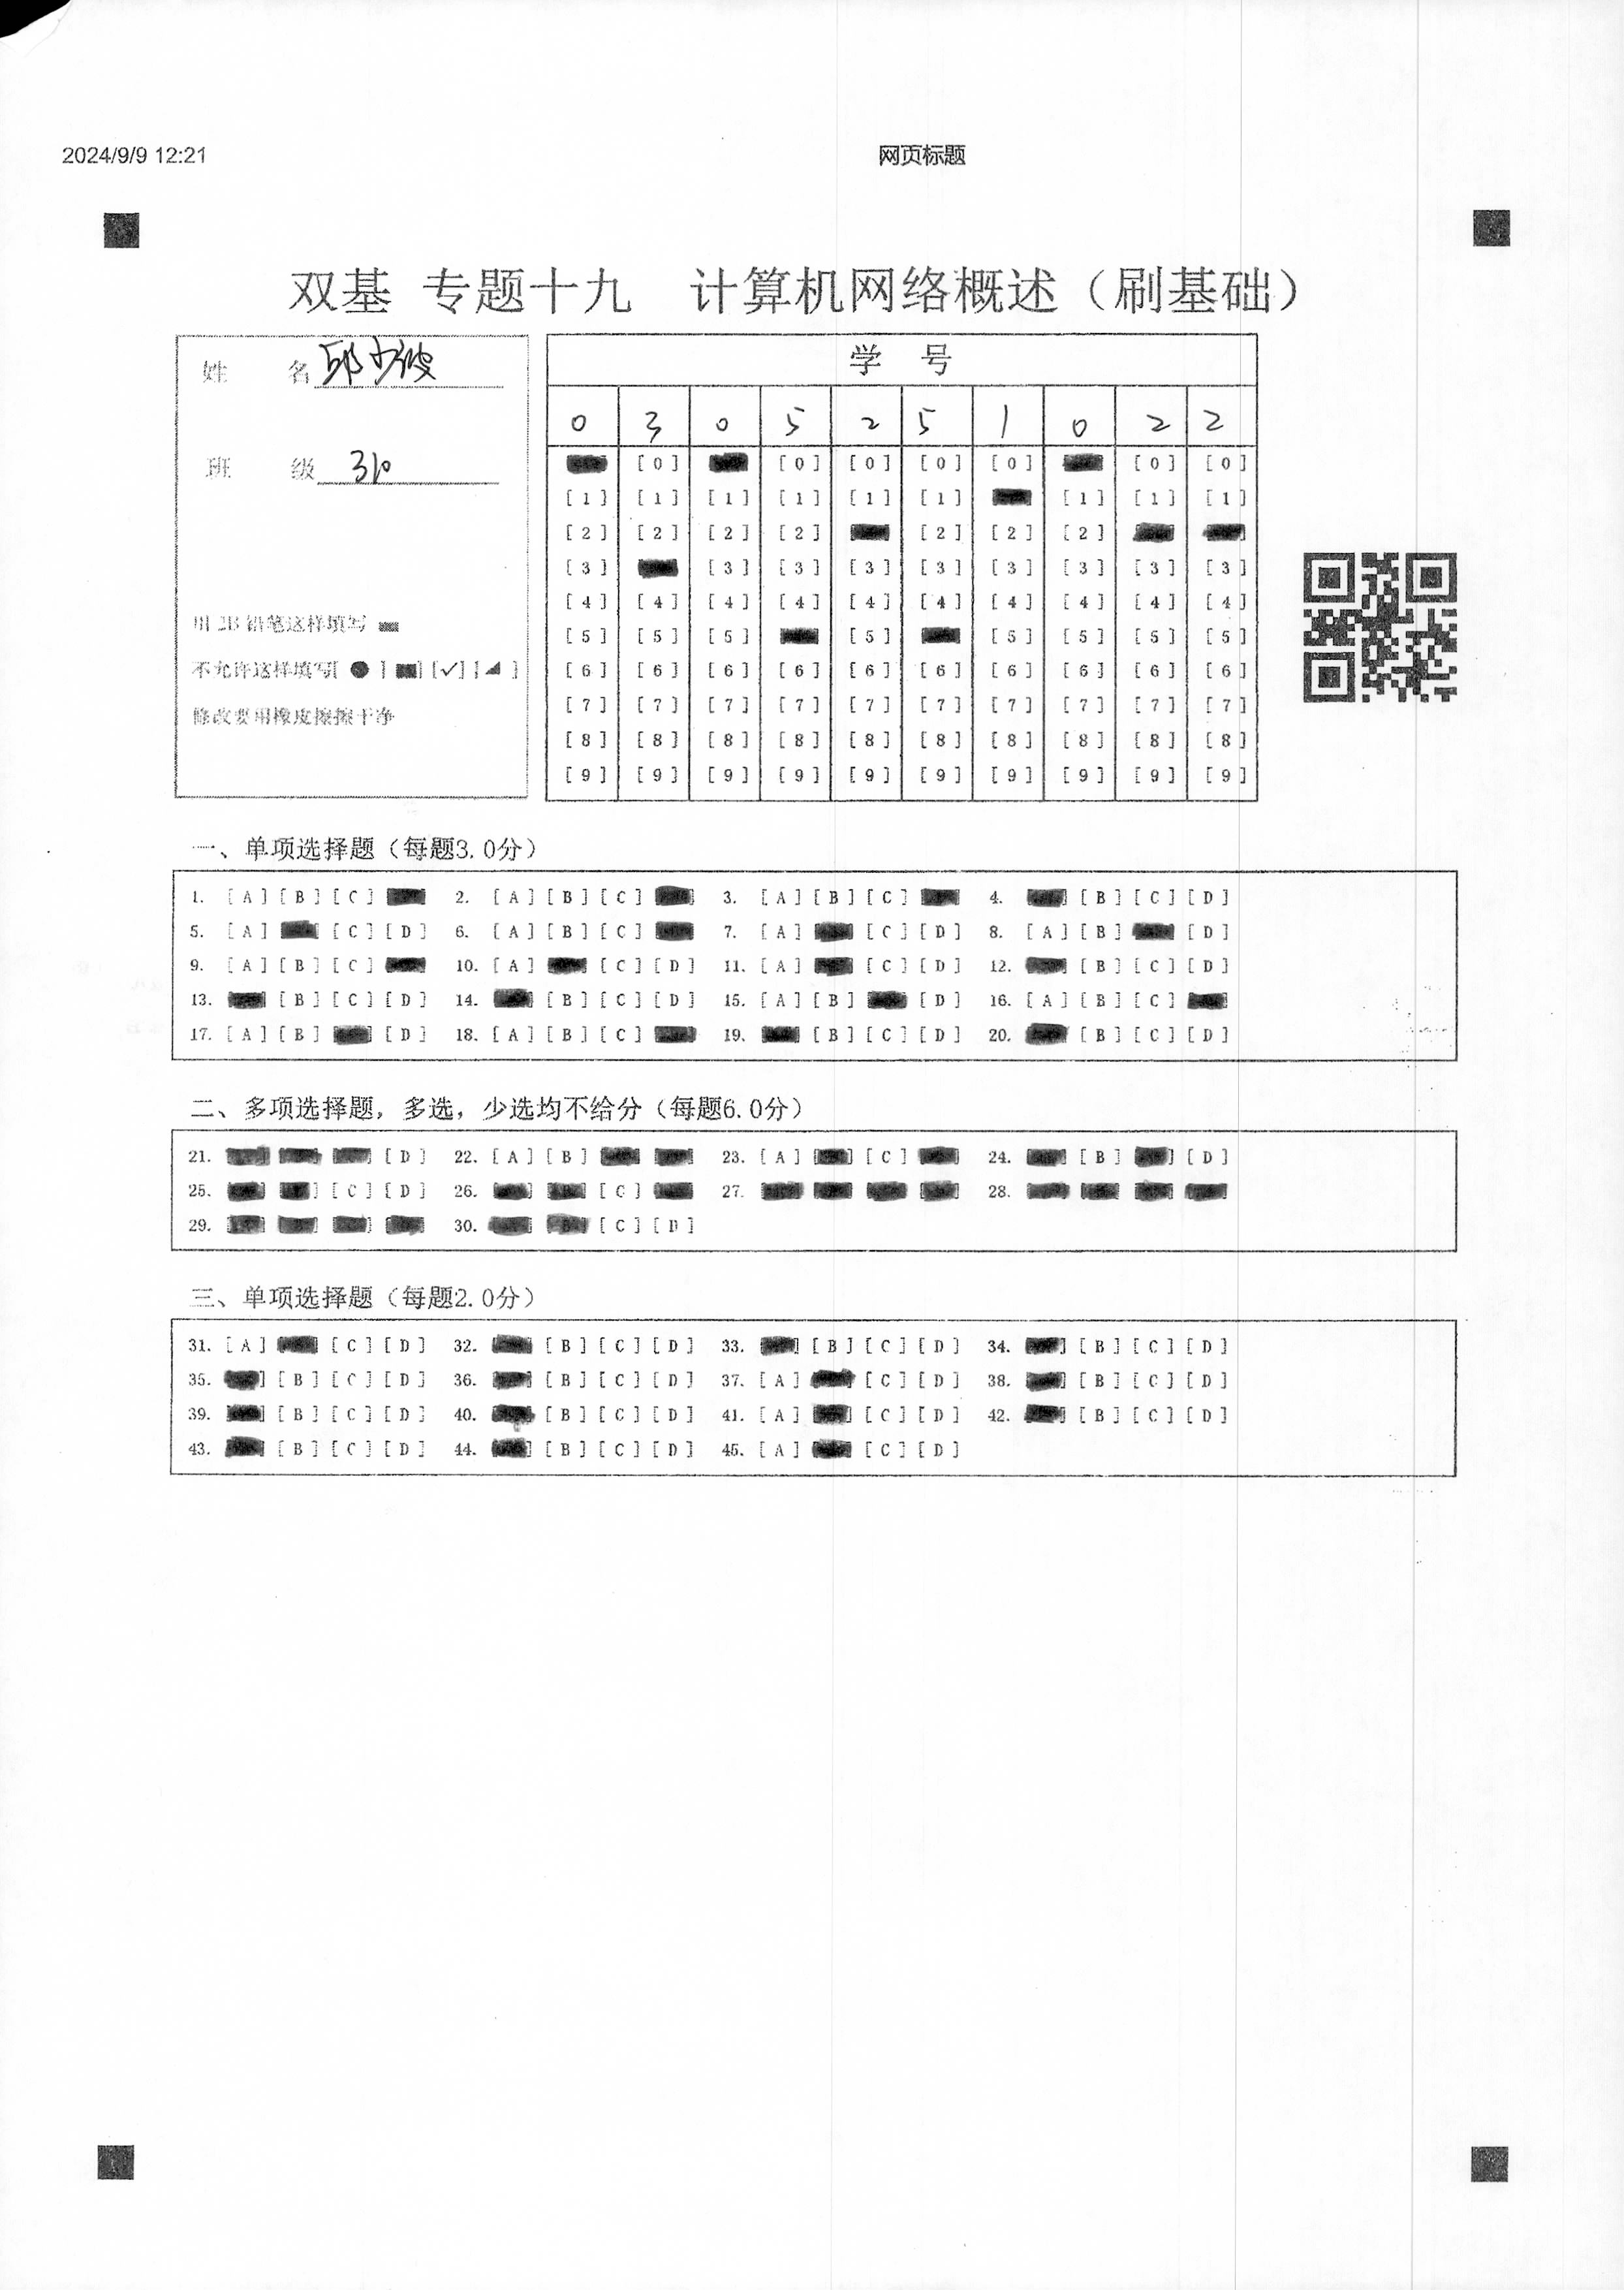 2024/9/9 12:21 网页标题
双基 专题十九 计算机网络概述（刷基础）
姓 名 邱少波
班 级 310
用 2B 铅笔这样填写
不允许这样填写[ ● ] [■] [✓] [◢ ]
修改要用橡皮擦擦干净
学 号
0 3 0 5 2 5 1 0 2 2
[0] [0] [0] [0] [0] [0] [0]
[1] [1] [1] [1] [1] [1] [1] [1] [1]
[2] [2] [2] [2] [2] [2] [2]
[3] [3] [3] [3] [3] [3] [3] [3] [3]
[4] [4] [4] [4] [4] [4] [4] [4] [4] [4]
[5] [5] [5] [5] [5] [5] [5] [5]
[6] [6] [6] [6] [6] [6] [6] [6] [6] [6]
[7] [7] [7] [7] [7] [7] [7] [7] [7] [7]
[8] [8] [8] [8] [8] [8] [8] [8] [8] [8]
[9] [9] [9] [9] [9] [9] [9] [9] [9] [9]
一、单项选择题（每题3.0分）
1. [A] [B] [C] 2. [A] [B] [C] 3. [A] [B] [C] 4. [B] [C] [D]
5. [A] [C] [D] 6. [A] [B] [C] 7. [A] [C] [D] 8. [A] [B] [D]
9. [A] [B] [C] 10. [A] [C] [D] 11. [A] [C] [D] 12. [B] [C] [D]
13. [B] [C] [D] 14. [B] [C] [D] 15. [A] [B] [D] 16. [A] [B] [C]
17. [A] [B] [D] 18. [A] [B] [C] 19. [B] [C] [D] 20. [B] [C] [D]
二、多项选择题，多选，少选均不给分（每题6.0分）
21. [D] 22. [A] [B] 23. [A] [C] 24. [B] [D]
25. [C] [D] 26. [C] 27. 28.
29. 30. [C] [D]
三、单项选择题（每题2.0分）
31. [A] [C] [D] 32. [B] [C] [D] 33. [B] [C] [D] 34. [B] [C] [D]
35. [B] [C] [D] 36. [B] [C] [D] 37. [A] [C] [D] 38. [B] [C] [D]
39. [B] [C] [D] 40. [B] [C] [D] 41. [A] [C] [D] 42. [B] [C] [D]
43. [B] [C] [D] 44. [B] [C] [D] 45. [A] [C] [D]